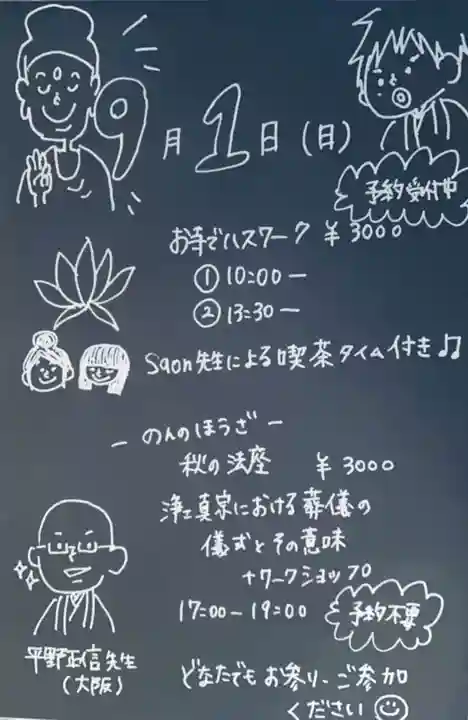 9月1日(日)
予約受付中
お寺でハスワーク ¥3000
① 10:00ー
② 13:30ー
Saon先生による喫茶タイム付き♫
ー のんのほうざ ー
秋の法座 ¥3000
浄土真宗における葬儀の
儀式とその意味
+ワークショップ
17:00ー19:00
予約不要
平野正信先生
(大阪)
どなたでもお参り、ご参加
ください☺